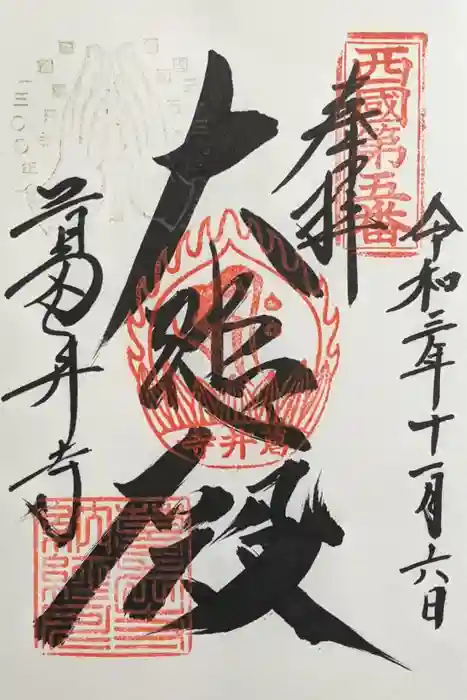 西國第五番
奉拝
令和三年十一月六日
大悲殿
葛井寺
葛井寺